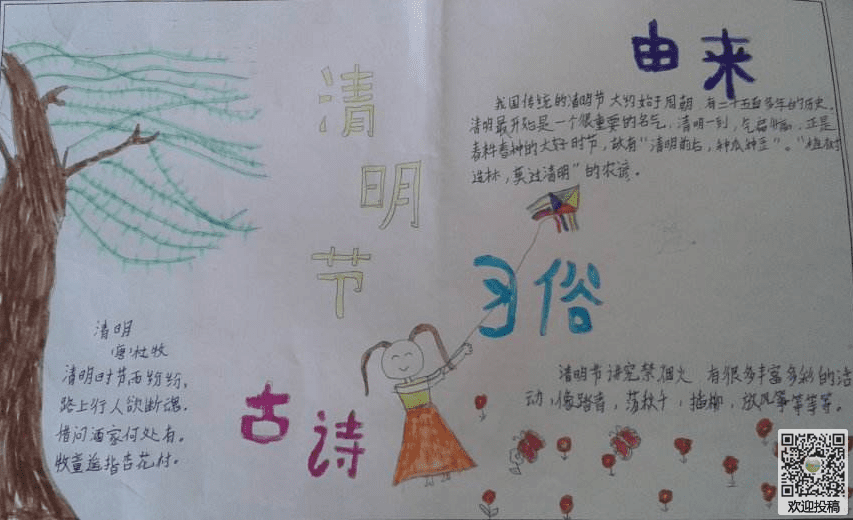 清明节
由来
我国传统的清明节大约始于周朝，有二千五百多年的历史。
清明最开始是一个很重要的节气，清明一到，气温升高，正是
春耕春种的大好时节，故有“清明前后，种瓜种豆”。“植树
造林，莫过清明”的农谚。
习俗
清明节讲究禁烟火 有很多丰富多彩的活
动，像踏青，荡秋千，插柳，放风筝等等等。
古诗
清明
（唐）杜牧
清明时节雨纷纷，
路上行人欲断魂。
借问酒家何处有。
牧童遥指杏花村。
欢迎投稿